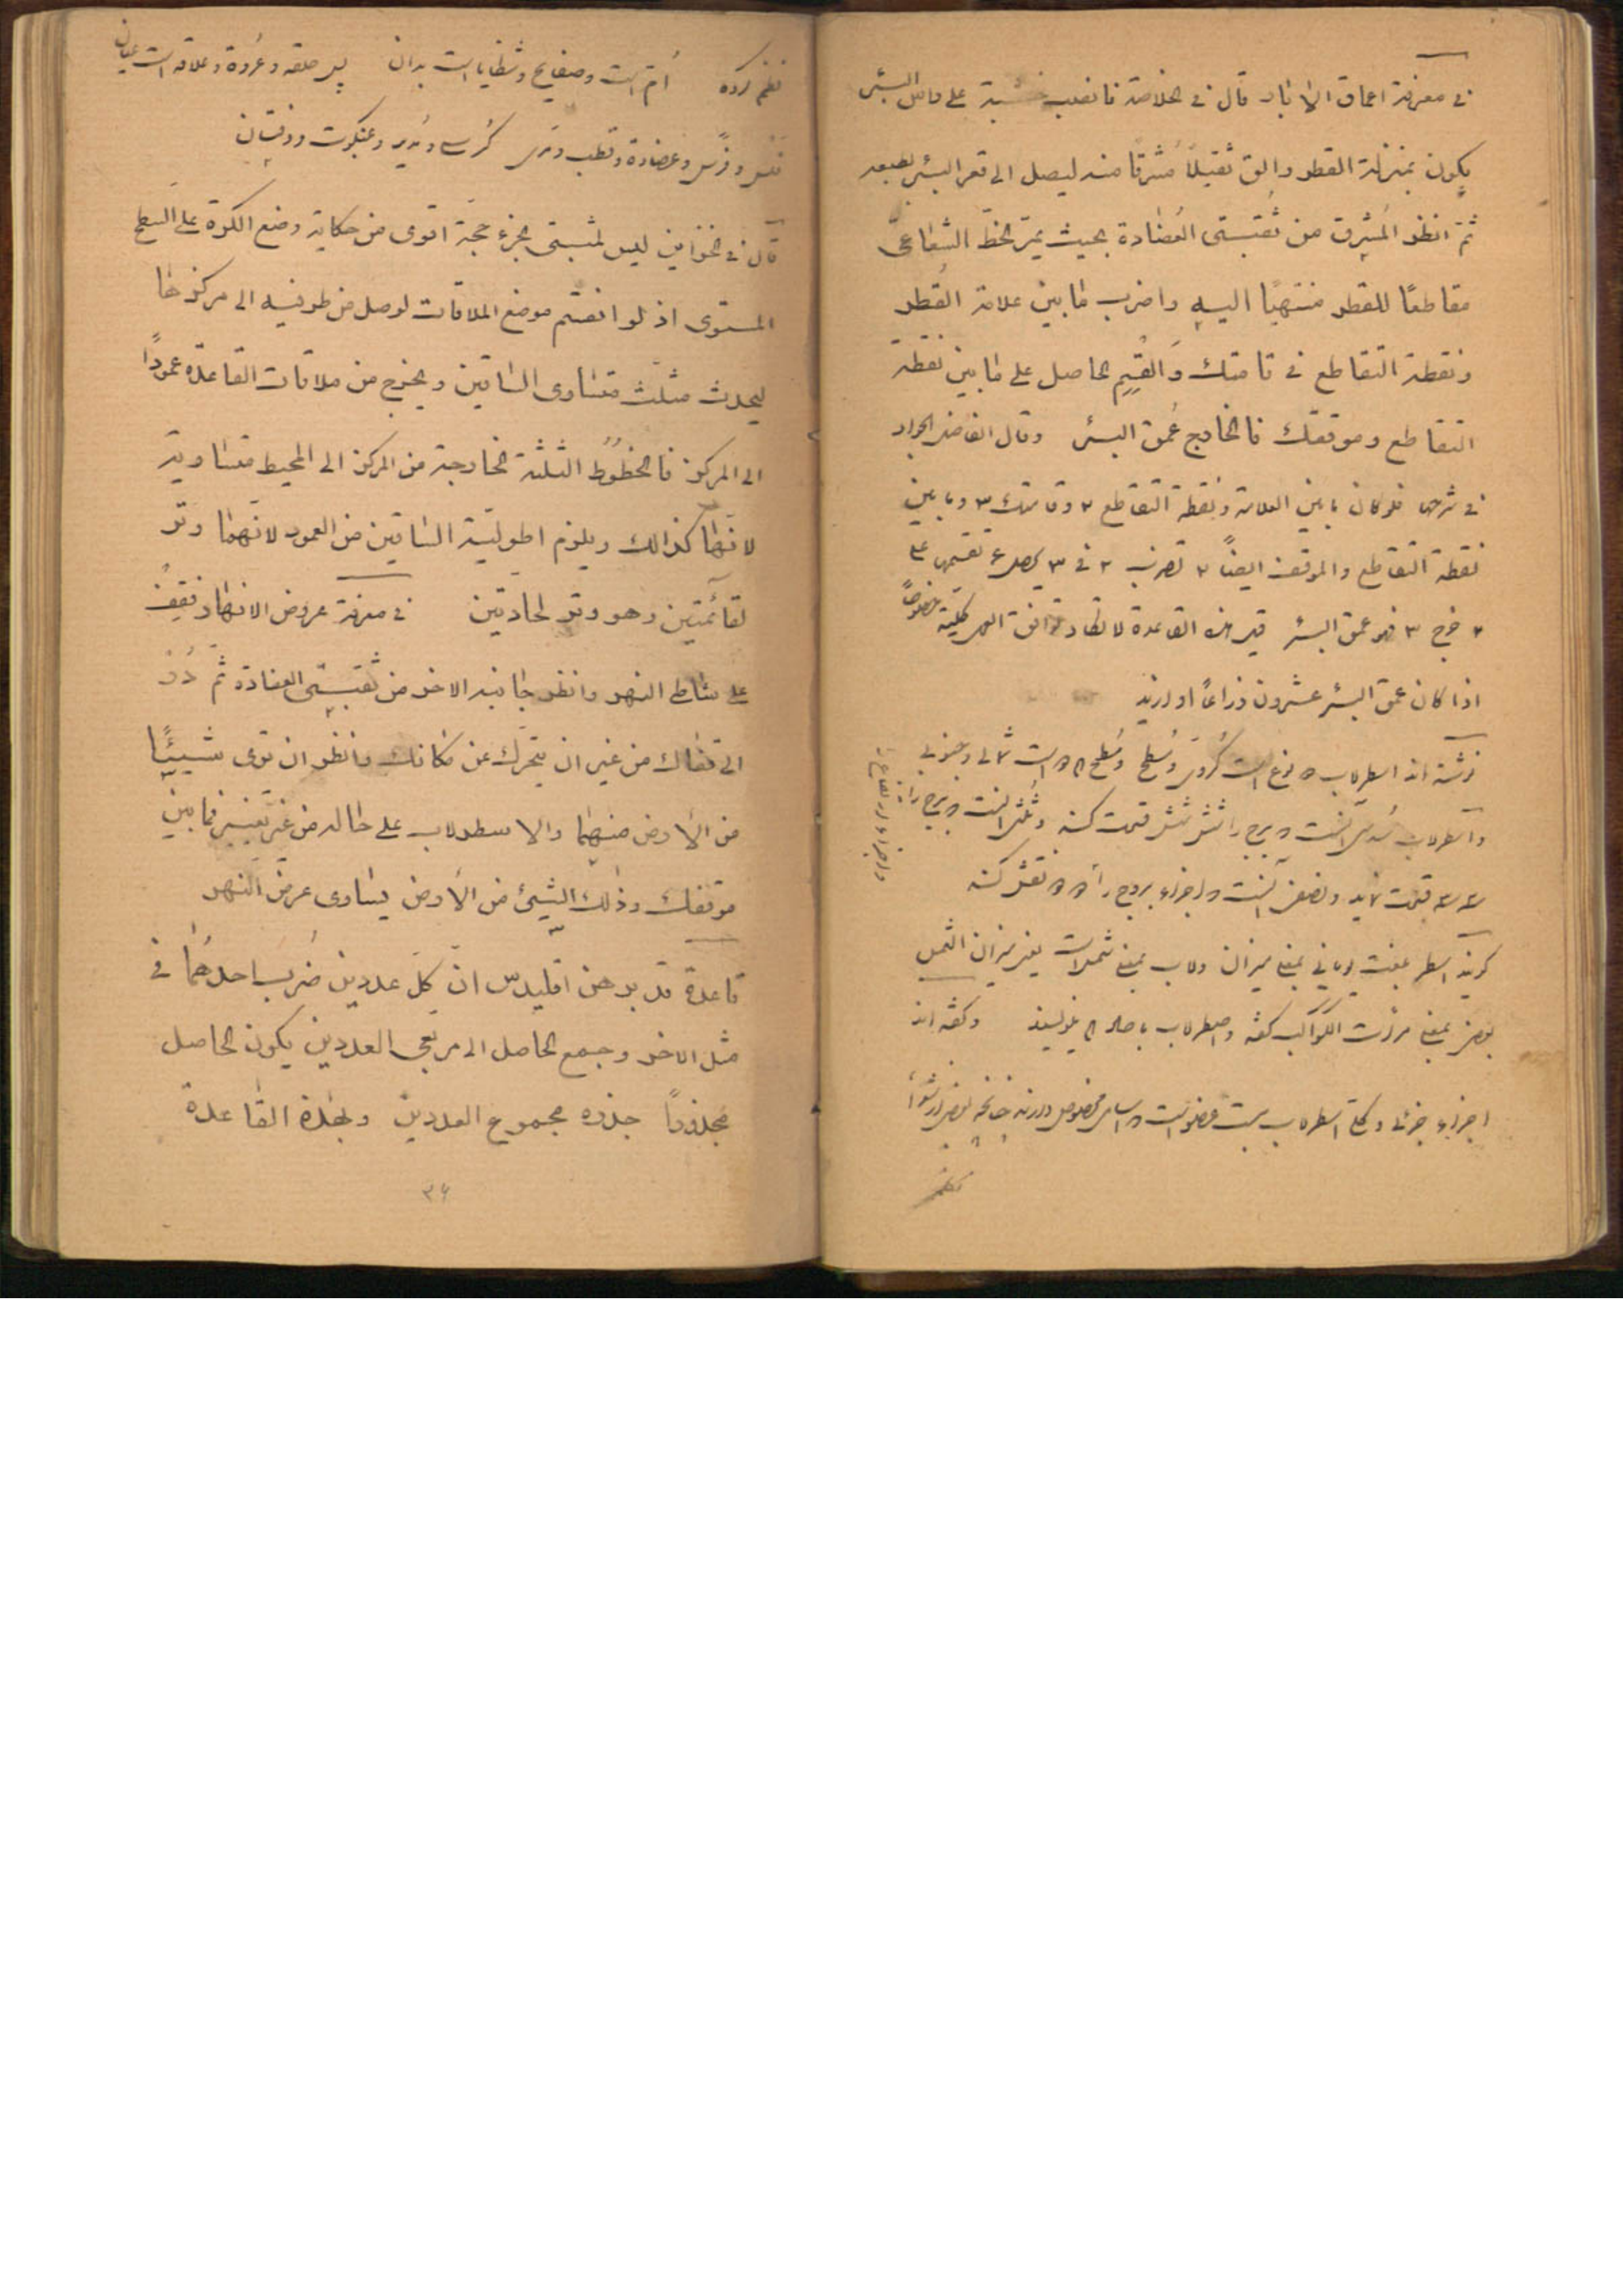 فی معرفة اعماق الابار قال فی الخلاصة فانصب خشبة علی راس البئر
یکون بمنزلة القطر والق ثقیلاً مشرقا منه لیصل الی قعر البئر بطبعه
ثمّ انظر المشرق من ثقبتی العضادة بحیث یمرّ الخطّ الشعاعیّ
مقاطعًا للقطر منتهیًا الیه واضرب ما بین علامة القطر
ونقطة التقاطع فی قامتك واقسم الحاصل علی ما بین نقطة
التقاطع وموقفك فالخارج عمق البئر وقال الفاضل الجواد
فی شرحه فلو کان ما بین العلامة ونقطة التقاطع ۲ وقامتك ۳ وما بین
نقطة التقاطع والموقف ایضاً ۲ تضرب ۲ فی ۳ یحصل ۶ تقسمه علی
۲ خرج ۳ فهو عمق البئر قیل هذه القاعدة لا تکاد توافق العمل کلیة خصوصًا
اذا کان عمق البئر عشرون ذراعًا او ازید
نوشته اند اسطرلاب دو نوع است کروی ومسطح ومسطح دو است شمالی وجنوبی
واسطرلاب سدس آنست که برج را شش شش قسمت کنند وثلث آنست که برج را
سه سه قسمت نماید ونصف آنست که اجزاء بروج را دو دو نقش کنند
کویند اسطر بلغت یونانی بمعنی میزان ولاب بمعنی شمس است یعنی میزان الشمس
بعضی بمعنی مرآت الکواکب گفته واصطرلاب با صاد هم نویسند وگفته اند
اجزاء
نظم کرده امّ است وصفایح وشظایا است بدان پس حلقه وعروة وعلاقه است عیان
فلس وفرس وعضادة وقطب ومری کرسی ومدیر وعنکبوت ودفتان
قال فی الخزاین لیس لمثبتی الجزء حجّة اقوی من حکایة وضع الکرة علی السطح
المستوی اذ لو انقسم موضع الملاقات لوصل من طرفیه الی مرکزها
لیحدث مثلّث متساوی الساقین ویخرج من ملاقات القاعدة عمودًا
الی المرکز فالخطوط الثلثة الخارجة من المرکز الی المحیط متساویة
لانّها کذالك ویلزم اطولیّة الساقین من العمود لانّهما وتر
لقائمتین وهو وتر لحادّتین فی معرفة عروض الانهار فقف
علی شاطی النهر وانظر جانبه الاخر من ثقبتی العضادة ثمّ دُر
الی قفاك من غیر ان تتحرّك عن مکانك وانظر ان تری شیئًا
من الأرض منهما والاسطرلاب علی حاله من غیر تغییر فما بین
موقفك وذلك الشیئ من الأرض یساوی عرض النهر
قاعدة قد برهن اقلیدس انّ کلّ عددین ضرب احدهما فی
مثل الاخر وجمع الحاصل الی مربعی العددین یکون الحاصل
مجذورًا جذره مجموع العددین ولهذه القاعدة
۳۶